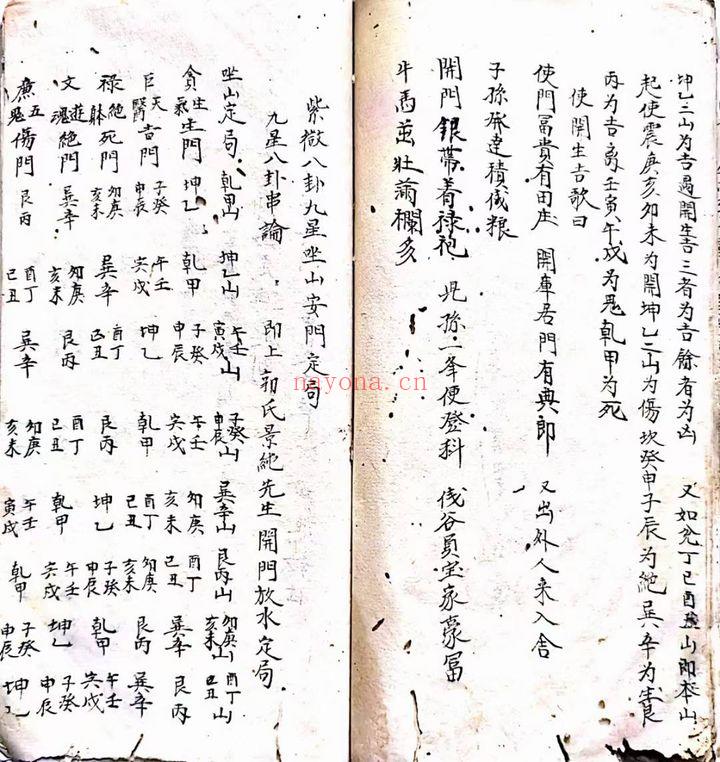 坤乙二山为吉遇開生吉三者为吉餘者为凶　又如兊丁己酉丑山即本山
起使震庚亥卯未为開坤乙二山为傷坎癸申子辰为絶巽辛为生艮
丙为吉离壬寅午戍为鬼乾甲为死
使開生吉歌曰
使門冨貴有田庄　開車居門有典郎　又出外人来入舍
子孫發達積伐粮
開門銀帶着祿袍　児孫一举便登科　伐谷員宝家豪冨
牛馬並壮满欄多
紫微八卦九星坐山安門定局
九星八卦串論　即上郭氏景純先生開門放水定局
坐山定局　乾甲山　坤乙山　午壬寅戍山　子癸申辰山　巽辛山　艮丙山　卯庚亥未山　酉丁己丑山
貪生氣生門　坤乙　乾甲　子癸申辰　午壬寅戍　卯庚亥未　酉丁己丑　巽辛　艮丙
巨天醫吉門　子癸申辰　午壬寅戍　坤乙　乾甲　酉丁己丑　卯庚亥未　艮丙　巽辛
禄絶躰死門　卯庚亥未　巽辛　酉丁己丑　艮丙　坤乙　子癸申辰　乾甲　午壬寅戍
文遊魂絶門　巽辛　卯庚亥未　艮丙　酉丁己丑　乾甲　午壬寅戍　坤乙　子癸申辰
廉五鬼傷門　艮丙　酉丁己丑　巽辛　卯庚亥未　午壬寅戍　乾甲　子癸申辰　坤乙
nayona.cn